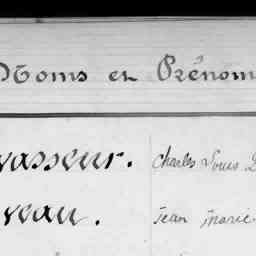 Noms et Prénom
vasseur. Charles Louis
veau. Jean Marie